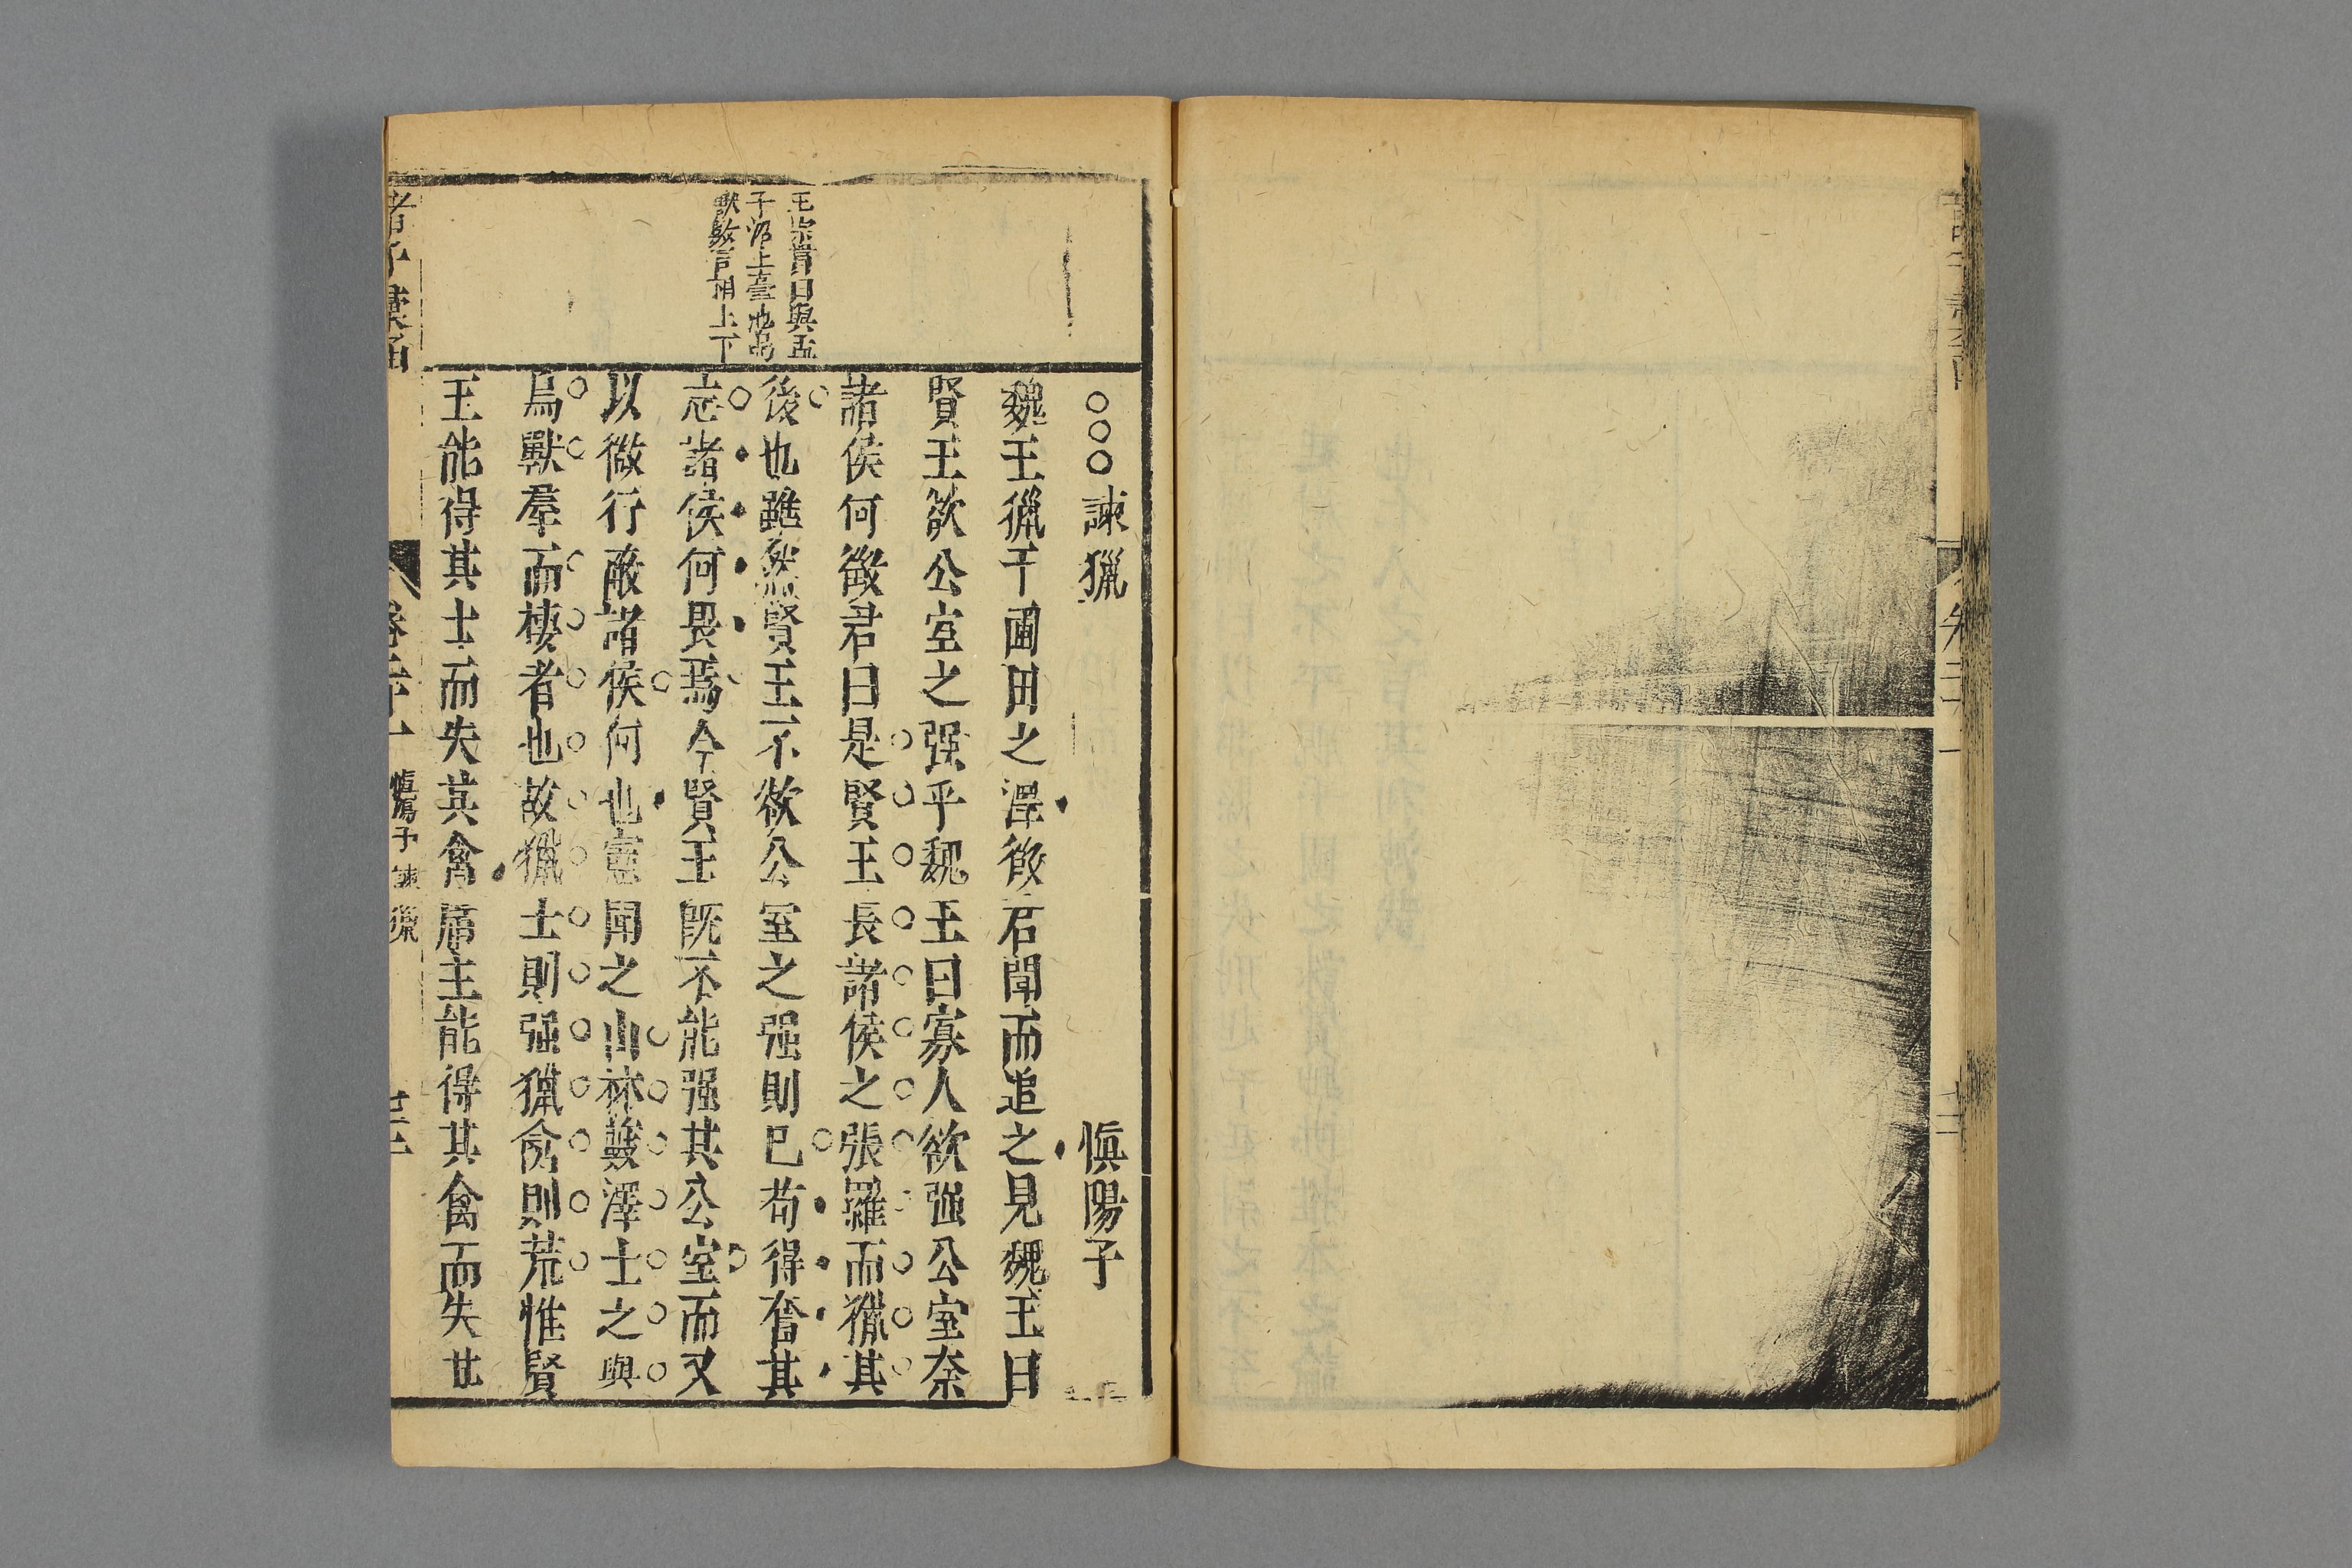 ○○○諫獵 愼陽子
魏王獵于圃田之澤徵君聞而追之見魏王曰
賢王欲公室之强乎魏王曰寡人欲强公室奈
諸侯何徵君曰是賢王長諸侯之張羅而獵其
後也雖然賢王不欲公室之强則已苟得奮其
志諸侯何畏焉今賢王旣不能强其公室而又
以微行敵諸侯何也憲聞之山林藪澤士之與
鳥獸羣而棲者也故獵士則强獵禽則荒惟賢
王能得其士而失其禽庸主能得其禽而失其
王宗貫曰與孟
子沼上臺池鳥
獸數言相上下
諸子彙函
卷二十一
愼陽子 諫獵